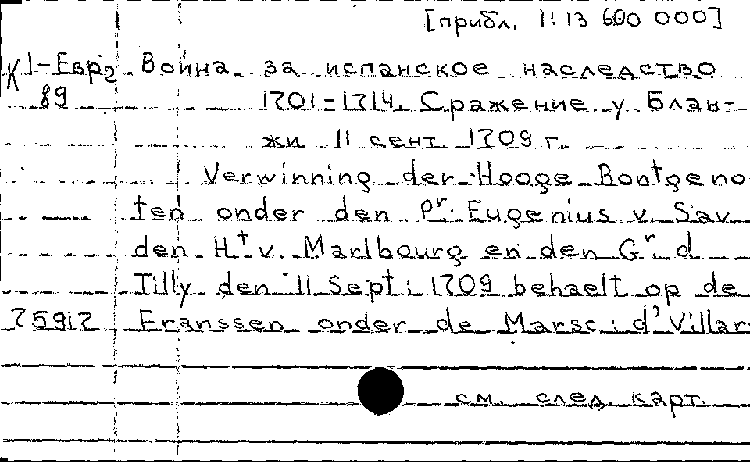 [прибл. 1:13 600 000]
К 1-Евр2 Война за испанское наследство
89 1701-1714. Сражение у Блан-
жи 11 сент. 1709 г.
Verwinning der Hooge Bontgeno
ten onder den Pr. Eugenius v. Sav
den Ht v. Marlbourg en den Gr d
Tilly den 11 Sept: 1709 behaelt op de
75917 Franssen onder de Marsc: d'Villar
см. след. карт.